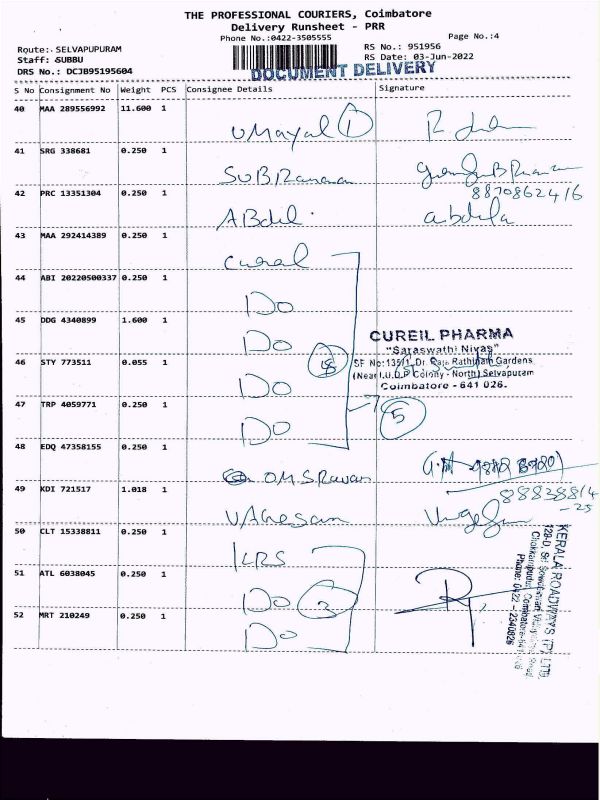 THE PROFESSIONAL COURIERS, Coimbatore
Delivery Runsheet - PRR
Phone No.:0422-3505555 Page No.:4
Route: SELVAPUPURAM RS No.: 951956
Staff: SUBBU RS Date: 03-Jun-2022
DRS No.: DCJB95195604 DOCUMENT DELIVERY
S No Consignment No Weight PCS Consignee Details Signature
40 MAA 289556992 11.600 1
Umayal 1
41 SRG 338681 0.250 1
SUBRamanan
8870862416
42 PRC 13351304 0.250 1
ABdil. abdula
43 MAA 292414389 0.250 1
Cureal
44 ABI 20220500337 0.250 1
Do
45 DDG 4340899 1.600 1
Do
CUREIL PHARMA
"Saraswathi Nivas"
46 STY 773511 0.055 1
SF No:135/1, Dr. Raja Rathinam Gardens
(Near I.U.D.P Colony - North) Selvapuram
Coimbatore - 641 026.
Do
47 TRP 4059771 0.250 1
Do 5
48 EDQ 47358155 0.250 1
OMSRavan
49 KDI 721517 1.018 1
88838814
-25
VAnesan
50 CLT 15338811 0.250 1
KRS
51 ATL 6038045 0.250 1
Do 3
52 MRT 210249 0.250 1
Do
KERALA ROADWAYS (P) LTD.
Phone: 0422 - 2340826